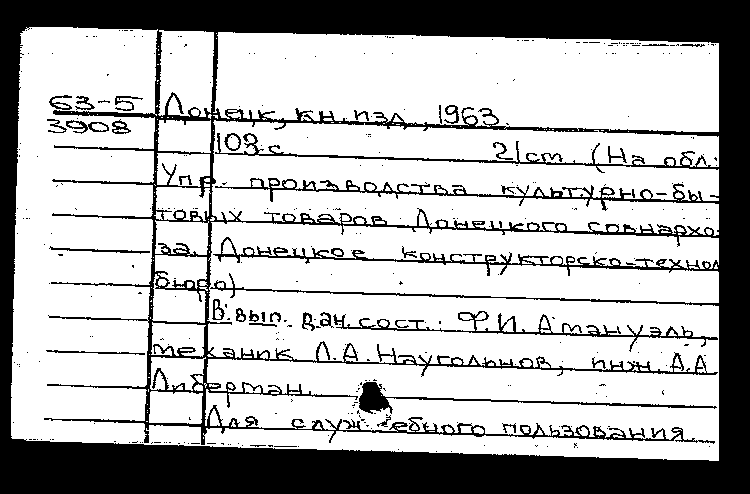 63-5 Донецк, кн. изд., 1963.
3908
103 с. 21 см. (На обл.:
Упр. производства культурно-бы-
товых товаров Донецкого совнархо-
за. Донецкое конструкторско-технол
бюро)
В вып. дан. сост.: Ф.И. Амануэль,
механик Л.А. Наугольнов, инж. А.А
Либерман.
Для служебного пользования.